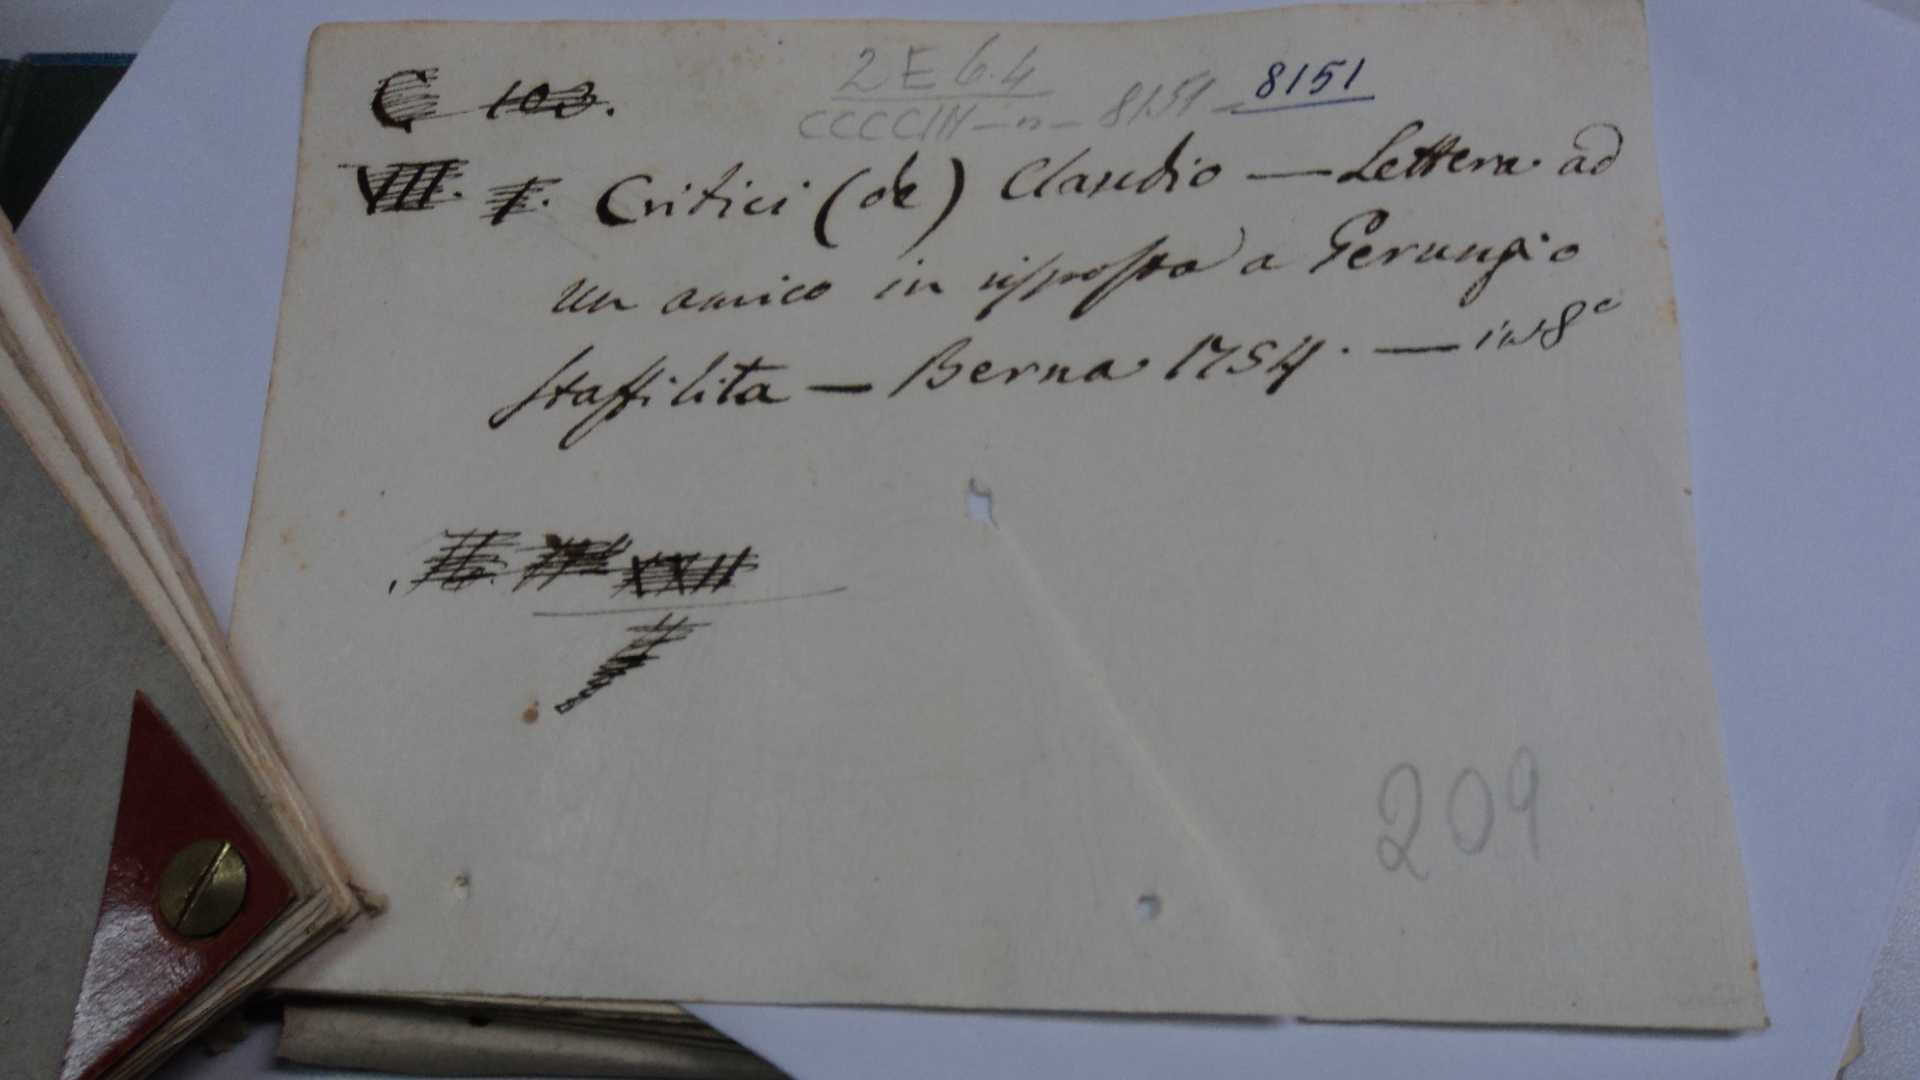 2 E 6.4
C 103.
CCCCIII - n - 8151 - 8151
VII. I. Critici (de) Claudio — Lettera ad
un amico in risposta a Perungio
staffilita — Berna 1754. — in 8°
XXII
209